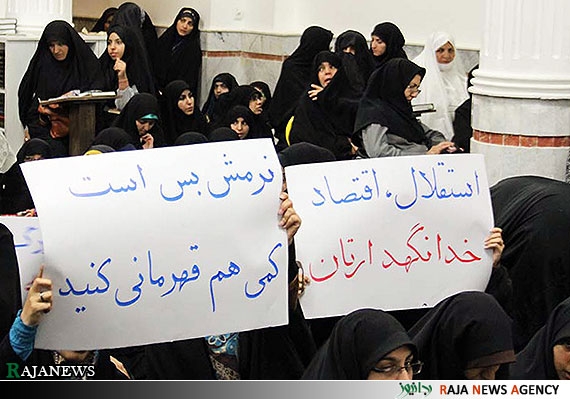 نرمش بس است
کمی هم قهرمانی کنید
استقلال، اقتصاد
خدانگهدارتان
RAJANEWS
رجانیوز RAJA NEWS AGENCY